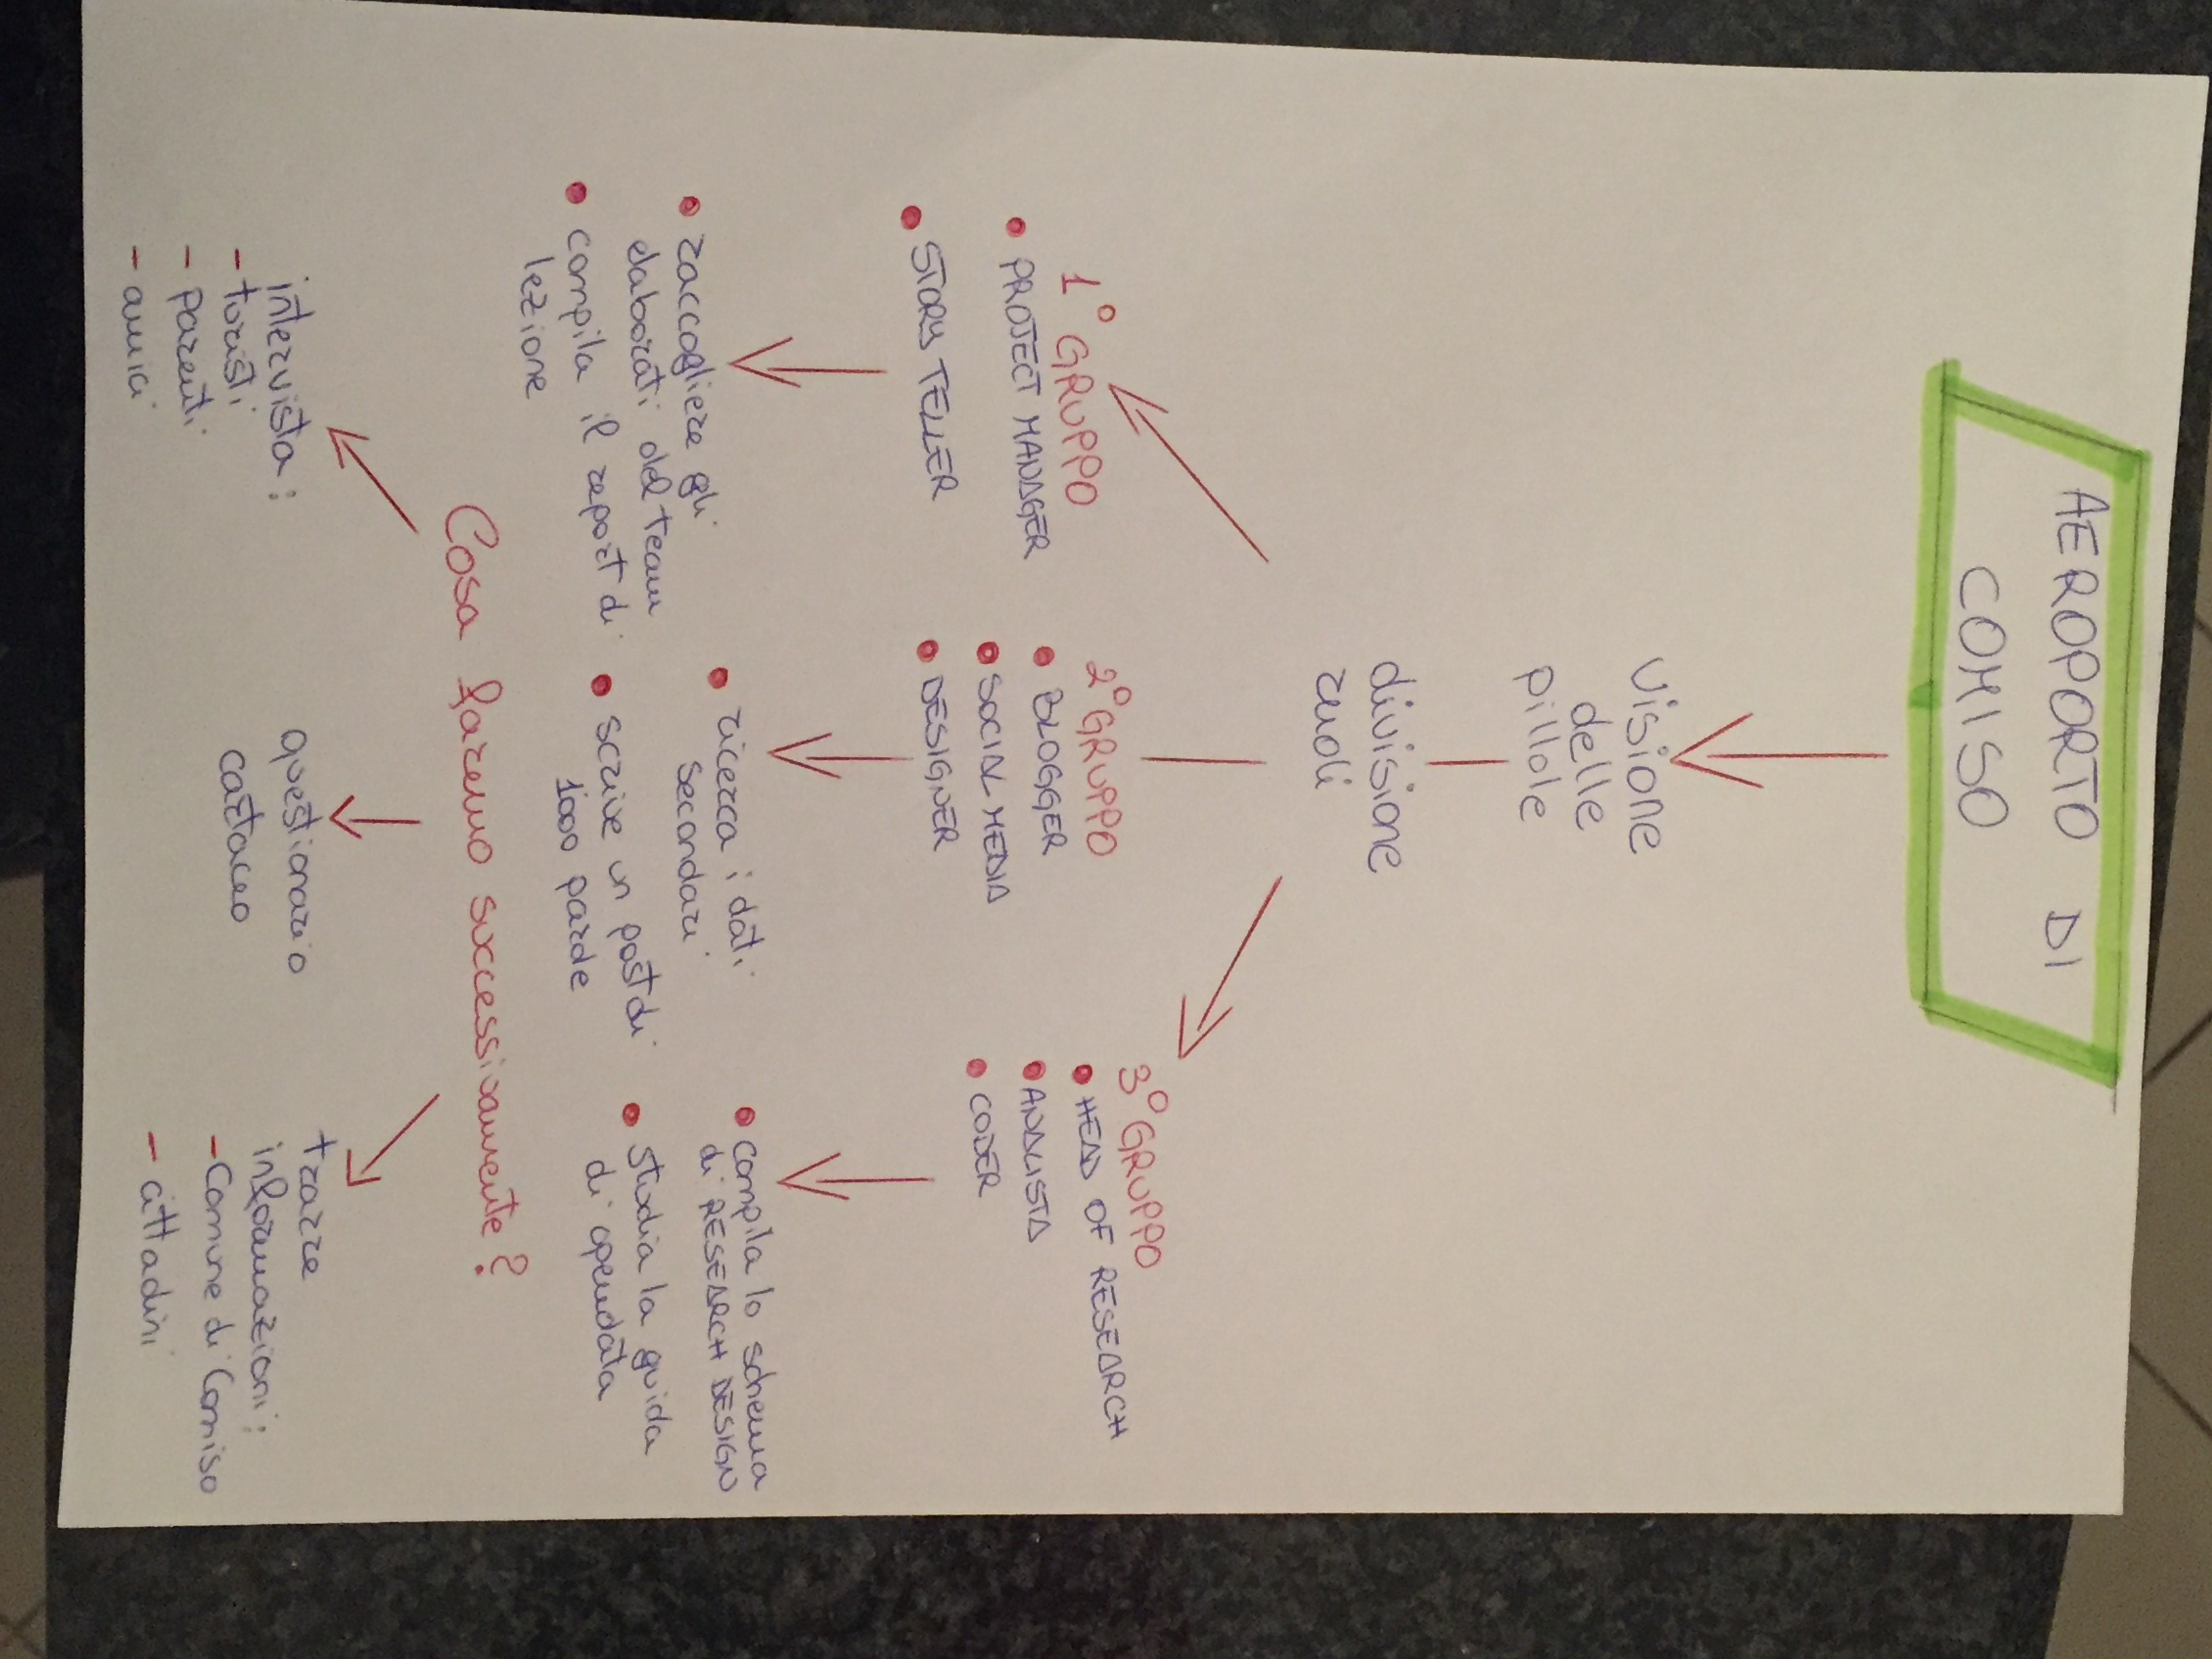 AEROPORTO DI
COMISO
visione
delle
pillole
divisione
ruoli
1° GRUPPO
• PROJECT MANAGER
• STORY TELLER
• raccogliere gli
elaborati del team
• compila il report di
lezione
2° GRUPPO
• BLOGGER
• SOCIAL MEDIA
• DESIGNER
• ricerca i dati
secondari
• scrive un post di
1000 parole
3° GRUPPO
• HEAD OF RESEARCH
• ANALISTA
• CODER
• compila lo schema
di RESEARCH DESIGN
• studia la guida
di opendata
Cosa faremo successivamente?
intervista:
- turisti
- parenti
- amici
questionario
cartaceo
trarre
informazioni:
- Comune di Comiso
- cittadini